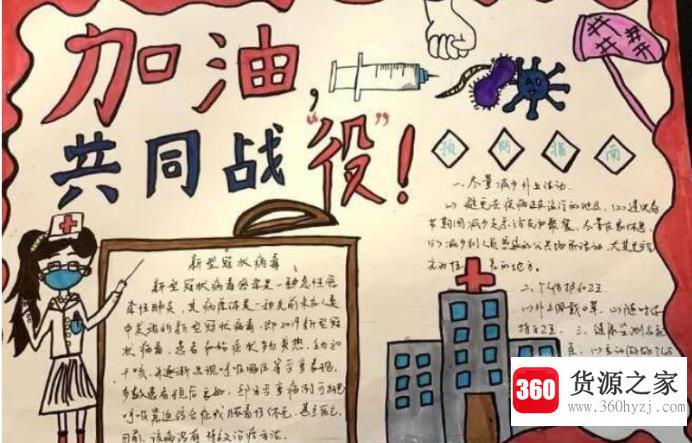 加油,
共同战“役”!
预防指南
一、尽量减少外出活动.
(1)避免去疾病正在流行的地区.(2)建议春
节期间减少走亲访友和聚餐,尽量在家休息.
(3)减少到人员密集的公共场所活动,尤其是
的地方.
二、个人防护和卫
(1)外出佩戴口罩.(2)随时保
持手卫生.三、健康监测与
新型冠状病毒
新型冠状病毒感染是一种急性感
染性肺炎,其病原体是一种先前未在人类
中发现的新型冠状病毒,即2019新型冠
状病毒.患者初始症状多为发热、乏力和
干咳,并逐渐出现呼吸困难等严重表现.
多数患者预后良好,部分严重病例可出现
急性呼吸窘迫综合征或脓毒症休克,甚至死亡.
目前,该病没有特效治疗方法.
360 货源之家
www.360hyzj.com